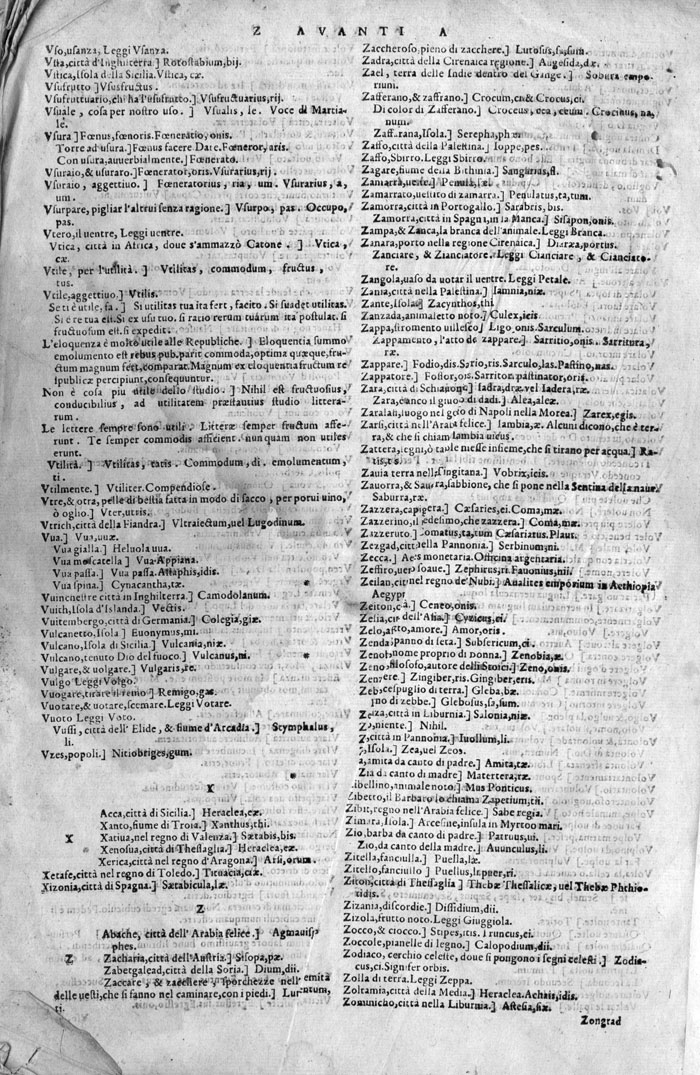 Z AVANTI A
Vso, usanza, Leggi Vsanza.
Vsta, città d'Inghilterra.] Rotostabium, bij.
Vstica, Isola della Sicilia. Vstica, cæ.
Vsufrutto ]Vsusfructus.
Vsufruttuario, chi ha l'usufrutto.] Vsufructuarius, rij.
Vsuale, cosa per nostro uso. ] Vsualis, le. Voce di Martia-
le.
Vsura] Fœnus, fœnoris. Fœneratio, onis.
Torre ad usura.] Fœnus facere Dare. Fœneror, aris.
Con usura, auuerbialmente.] Fœnerato.
Vsuraio, & usuraro.] Fœnerator, oris. Vsurarius, rij.
Vsuraio, aggettiuo. ] Fœneratorius, ria, um. Vsurarius, a,
um.
Vsurpare, pigliar l'altrui senza ragione.] Vsurpo, pas. Occupo,
pas.
Vtero, il uentre, Leggi uentre.
Vtica, città in Africa, doue s'ammazzò Catone. ] Vtica,
cæ.
Vtile, per l'utilità. ] Vtilitas, commodum, fructus,
tus.
Vtile, aggettiuo.] Vtilis.
Se ti è utile, fa. ] Si utilitas tua ita fert, facito. Si suadet utilitas.
Si è re tua est. Si ex usu tuo. si ratio rerum tuarum ita postulat. si
fructuosum est. si expedit.
L'eloquenza è molto utile alle Republiche. ] Eloquentia summo
emolumento est rebus pub. parit commoda, optima quæque, fru-
ctum magnum fert, comparat. Magnum ex eloquentia fructum re
spublicæ percipiunt, consequuntur.
Non è cosa piu utile dello studio. ] Nihil est fructuosius,
conducibilius, ad utilitatem præstantius studio littera-
rum.
Le lettere sempre sono utili. ] Litteræ semper fructum affe-
runt. Te semper commodis afficient. nunquam non utiles
erunt.
Vtilità. ] Vtilitas, tatis. Commodum, di. emolumentum,
ti.
Vtilmente. ] Vtiliter. Compendiose.
Vtre, & otra, pelle di bestia fatta in modo di sacco, per porui uino,
ò oglio.] Vter, utris.
Vtrich, città della Fiandra. ] Vltraiectum, uel Lugodinum.
Vua. ] Vua, uuæ.
Vua gialla. ] Heluola uua.
Vua moscatella ] Vua Appiana.
Vua passa. ] Vua passa. Astaphis, idis.
Vua spina. ] Cynacantha, tæ.
Vumenestre città in Inghilterra. ] Camodolanum.
Vuith, Isola d'Islanda. ] Vectis.
Vuitembergo, città di Germania. ] Colegia, giæ.
Vulcanetto, Isola ] Euonymus, mi.
Vulcano, Isola di Sicilia. ] Vulcania, niæ.
Vulcano, tenuto Dio del fuoco. ] Vulcanus, ni.
Vulgare, & uolgare. ] Vulgaris, re.
Vulgo Leggi Volgo.
Vuogare, tirare il remo ] Remigo, gas.
Vuotare, & uotare, scemare. Leggi Votare.
Vuoto Leggi Voto.
Vussi, città dell' Elide, & fiume d'Arcadia. ] Stymphalus,
li.
Vzes, popoli. ] Nitiobriges, gum.
X
Acca, città di Sicilia. ] Heraclea, eæ.
Xanto, fiume di Troia. ] Xanthus, thi.
X Xatiua, nel regno di Valenza. ] Sætabis, bis.
Xenosua, città di Thessaglia ] Heraclea, eæ
Xerica, città nel regno d'Aragona. ] Arsi, orum.
Xetafe, città nel regno di Toledo. ] Tituacia, ciæ.
Xizonia, città di Spagna. ] Sætabicula, læ.
Z
[Abache, città dell'Arabia felice. ] Agmauisp
phes.
Z Zacharia, città dell'Austria. ] Sisopa, pæ
Zabergalead, città della Soria. ] Dium, dii.
Zaccare, & zacchere, sporchezze nell'estremità
delle uesti, che si fanno nel caminare, con i piedi. ] Lutentum,
ti.
Zaccheroso, pieno di zacchere. ] Lutosus, sa, sum.
Zadra, città della Cirenaica regione. ] Augesida, dæ.
Zael, terra delle Indie dentro del Gange. ] Sobura empo-
rium.
Zafferano, & zaffrano. ] Crocum, ci, & Crocus, ci.
Di color di Zafferano. ] Croceus, cea, ceum. Crocinus, na,
num.
Zaffarana, Isola. ] Serepha, phæ.
Zaffo, città della Palestina. ] Ioppe, pes.
Zaffo, Sbirro. Leggi Sbirro.
Zagare, fiume della Bithinia. ] Sangarius, ii.
Zamarra, ueste. ] Penula, læ.
Zamarrato, uestito di zamarra. ] Penulatus, ta, tum.
Zamorra, città in Portogallo. ] Sarabris, bis.
Zamorra, città in Spagna, in la Manca. ] Sisapon, onis.
Zampa, & Zanca, la branca dell'animale. Leggi Branca.
Zanara, porto nella regione Cirenaica. ] Diaræa, portus.
Zanciare, & Zianciatore. Leggi Cianciare, & Cianciato-
re.
Zangola, uaso da uotar il uentre. Leggi Petale.
Zania, città nella Palestina. ] Iamnia, niæ.
Zante, Isola. ] Zacynthos, thi
Zanzada, animaletto noto. ] Culex, icis
Zappa, stromento uillesco. ] Ligo, onis. Sarculum.
Zappamento, l'atto de zappare. ] Sarritio, onis. Sarritura,
ræ.
Zappare. ] Fodio, dis. Sario, ris. Sarculo, las. Pastino, nas.
Zappatore. ] Fossor, oris. Sarritor. pastinator, oris.
Zara, città di Schiauonia ] Iadra, dræ. vel Iadera, ræ.
Zara, & anco il giuoco di dadi. ] Alea, aleæ.
Zaralan, luogo nel golfo di Napoli nella Morea. ] Zarex, egis.
Zarsi, città nell'Arabia felice. ] Iambia, æ. Alcuni dicono, che è ter-
ra, & che si chiam Iambia uicus.
Zattera, legni, ò tauole messe insieme, che si tirano per acqua. ] Ra-
tis, tis.
Zauia terra nella Tingitana. ] Vobrix, icis.
Zauorra, & Saurra, sabbione, che si pone nella Sentina della naue.
Saburra, ræ.
Zazzera, capigera. ] Cæsaries, ei. Coma, mæ.
Zazzerino, il medesimo, che zazzera. ] Coma, mæ.
Zazzeruto. ] Comatus, ta, tum Cæsariatus. Plaut.
Zezgad, città della Pannonia. ] Serbinum, ni.
Zecca. ] Aes monetaria. Officina argentaria.
Zeffiro, uento soaue. ] Zephirus, ri. Fauonius, nii.
Zeilan, città nel regno de' Nubi. ] Aualites emporium in Aethiopia
Aegypt
Zeiton, ] Centeo, onis.
Zelia, città dell'Asia. ] Cyzicus, ci.
Zelo, affetto, amore. ] Amor, oris.
Zenda, panno di seta. ] Subsericum, ci.
Zenobia, nome proprio di donna. ] Zenobia, æ.
Zeno, filosofo, autore delli Stoici. ] Zeno, onis.
Zenzere. ] Zingiber, ris. Gingiber, eris.
Zebe, cespuglio di terra. ] Gleba, bæ.
pieno di zebbe. ] Glebosus, sa, sum.
Zeiza, città in Liburnia. ] Salonia, niæ.
Zero, niente. ] Nihil.
Z , città in Pannonia. ] Iuollum, li.
, Isola. ] Zea, uel Zeos.
a, amita da canto di padre. ] Amita, tæ.
Zia di canto di madre] Matertera, ræ.
ibellino, animale noto. ] Mus Ponticus.
Zibetto, il Barbaro lo chiama Zapetium, tii.
Zibit, regno nell'Arabia felice. ] Sabe regia.
Zimara, Isola. ] Arcesine, insula in Myrtoo mari.
Zio, barba da canto di padre. ] Patruus, ui.
Zio, da canto della madre. ] Auunculus, li.
Zitella, fanciulla. ] Puella, læ.
Zitello, fanciullo ] Puellus, li. puer, ri.
Ziton, città di Thessaglia ] Thebæ Thessalicæ, uel Thebæ Phthio-
tidis.
Zizania, discordie. ] Dissidium, dii.
Zizola, frutto noto. Leggi Giuggiola.
Zocco, & ciocco. ] Stipes, itis. Truncus, ci.
Zoccole, pianelle di legno. ] Calopodium, dii.
Zodiaco, cerchio celeste, doue si pongono i segni celesti. ] Zodia-
cus, ci. Signifer orbis.
Zolla di terra. Leggi Zeppa.
Zoltamia, città della Media. ] Heraclea. Achais, idis.
Zomunicho, città nella Liburnia. ] Astesia, siæ.
Zongrad